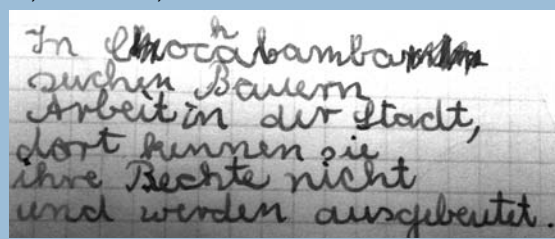 In Cochabamba
suchen Bauern
Arbeit in der Stadt,
dort kennen sie
ihre Rechte nicht
und werden ausgebeutet.